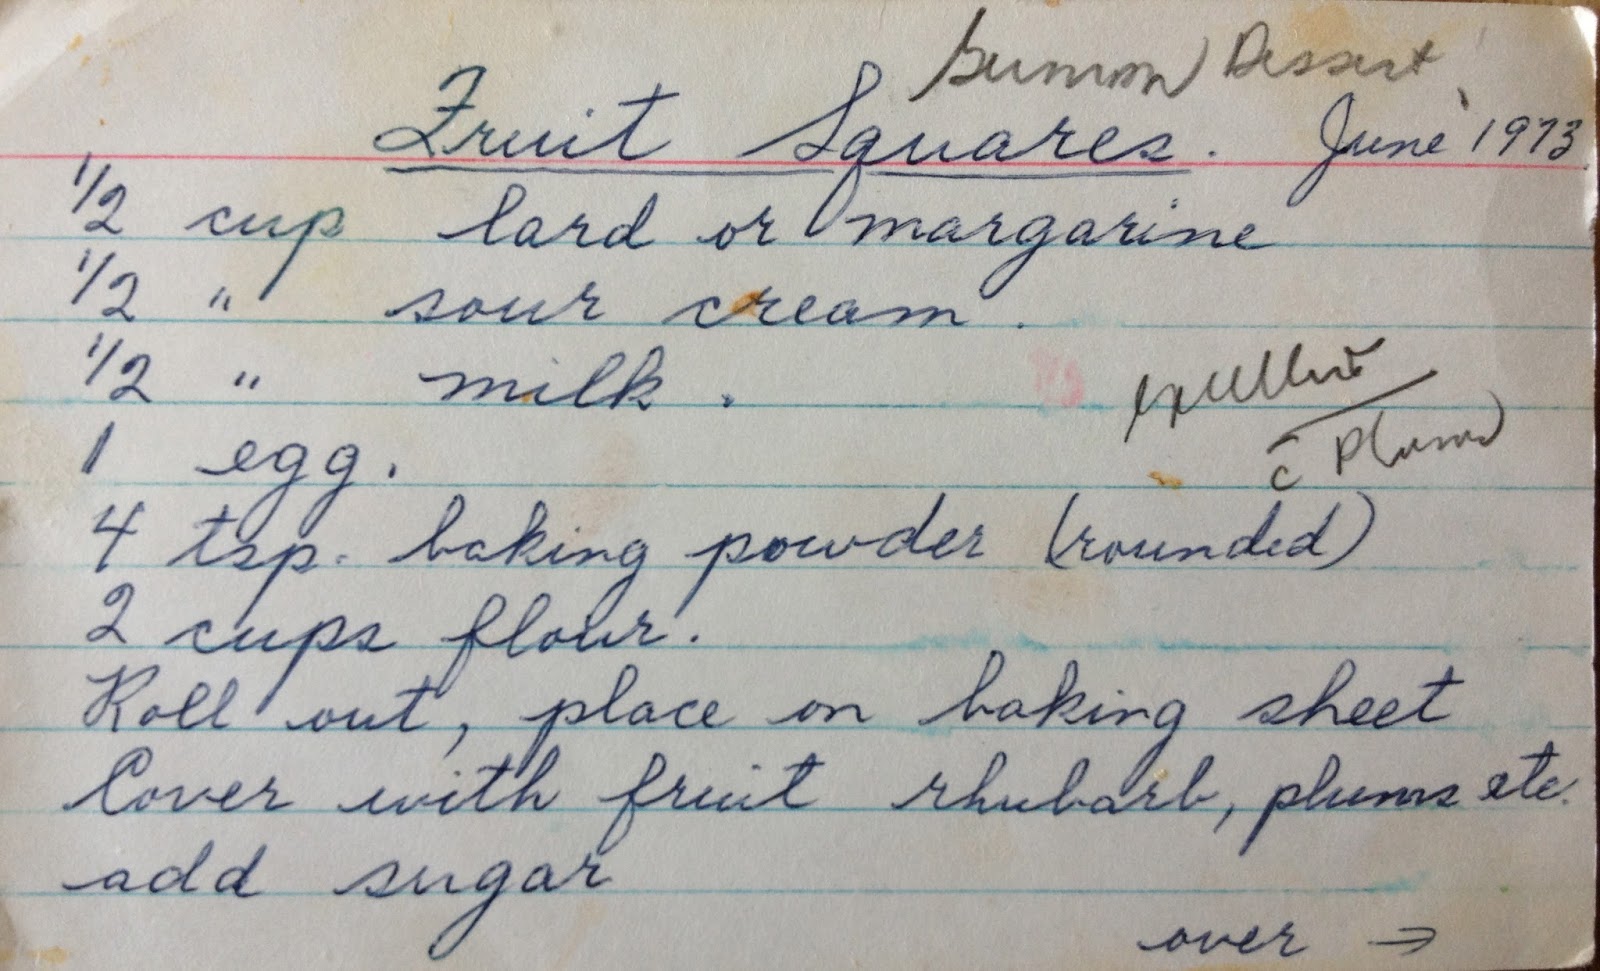 Dessert
Fruit Squares. June 1973
1/2 cup lard or margarine
1/2 " sour cream.
1/2 " milk.
excellent
1 egg.
c̄ Plums
4 tsp. baking powder (rounded)
2 cups flour.
Roll out, place on baking sheet
Cover with fruit rhubarb, plums etc.
add sugar
over →